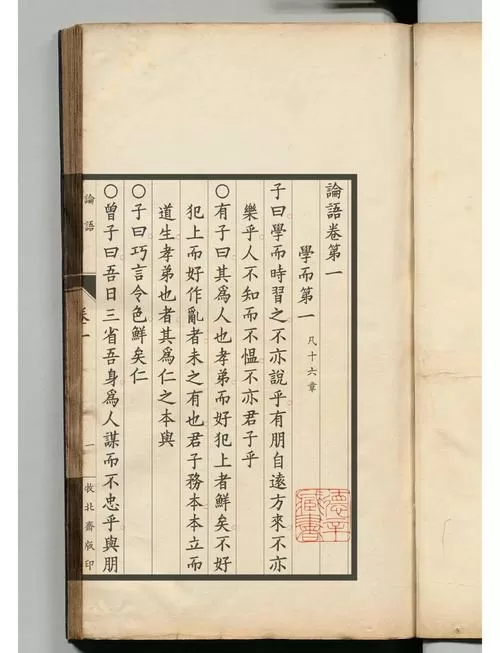 論語卷第一
學而第一 凡十六章
子曰學而時習之不亦說乎有朋自遠方來不亦
樂乎人不知而不慍不亦君子乎
○有子曰其爲人也孝弟而好犯上者鮮矣不好
犯上而好作亂者未之有也君子務本本立而
道生孝弟也者其爲仁之本與
○子曰巧言令色鮮矣仁
○曾子曰吾日三省吾身爲人謀而不忠乎與朋
論語
卷一
一
北齋版印